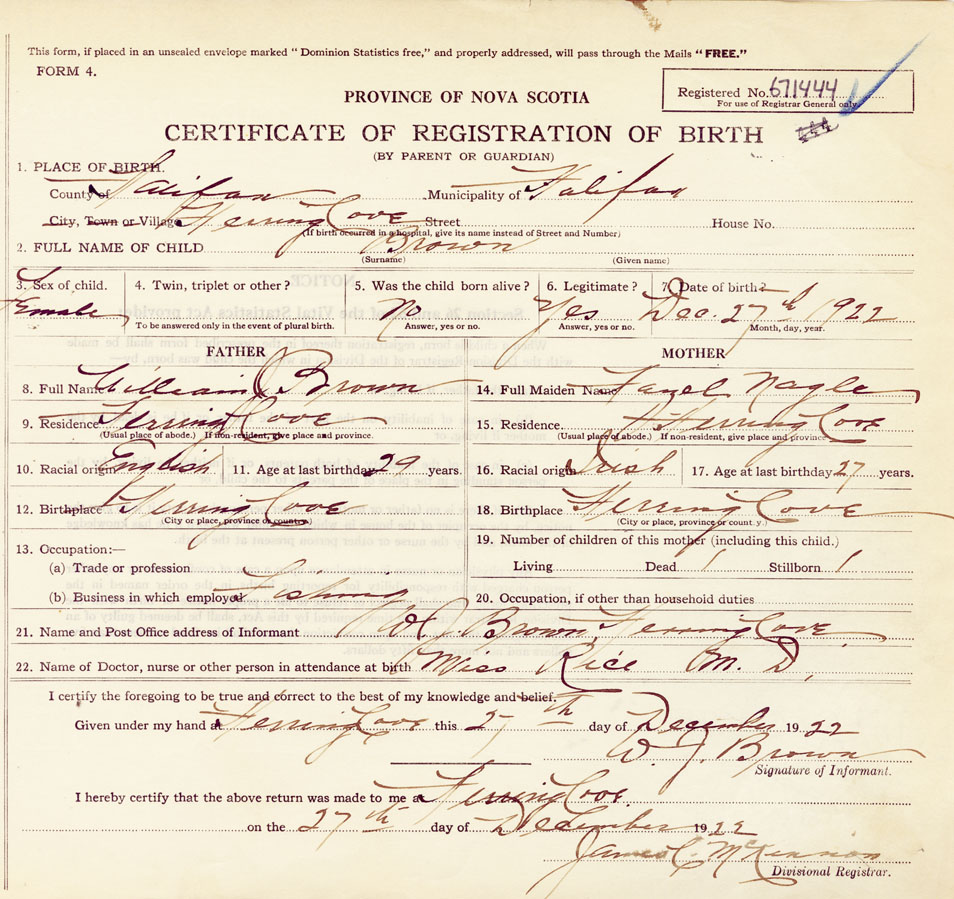 This form, if placed in an unsealed envelope marked "Dominion Statistics free," and properly addressed, will pass through the Mails "FREE."
FORM 4.
Registered No. 671444
For use of Registrar General only.
PROVINCE OF NOVA SCOTIA
CERTIFICATE OF REGISTRATION OF BIRTH
(BY PARENT OR GUARDIAN)
1. PLACE OF BIRTH.
County of Halifax Municipality of Halifax
City, Town or Village Herring Cove Street House No.
(If birth occurred in a hospital, give its name instead of Street and Number)
2. FULL NAME OF CHILD Brown
(Surname) (Given name)
3. Sex of child. 4. Twin, triplet or other? 5. Was the child born alive? 6. Legitimate? 7. Date of birth?
Female No Yes Dec. 27th 1922
To be answered only in the event of plural birth. Answer, yes or no. Answer, yes or no. Month, day, year.
FATHER MOTHER
8. Full Name William J Brown 14. Full Maiden Name Hazel Nagle
9. Residence Herring Cove 15. Residence Herring Cove
(Usual place of abode.) If non-resident, give place and province. (Usual place of abode.) If non-resident, give place and province
10. Racial origin English 11. Age at last birthday 29 years. 16. Racial origin Irish 17. Age at last birthday 27 years.
12. Birthplace Herring Cove 18. Birthplace Herring Cove
(City or place, province or country.) (City or place, province or county.)
13. Occupation:— 19. Number of children of this mother (including this child.)
(a) Trade or profession Living Dead 1 Stillborn 1
(b) Business in which employed Fishing 20. Occupation, if other than household duties
21. Name and Post Office address of Informant W J. Brown, Herring Cove
22. Name of Doctor, nurse or other person in attendance at birth Miss Rice M. D,
I certify the foregoing to be true and correct to the best of my knowledge and belief.
Given under my hand at Herring Cove this 27th day of December 1922
W. J. Brown
Signature of Informant.
I hereby certify that the above return was made to me at Herring Cove
on the 27th day of December 1922
James C McKinnon
Divisional Registrar.